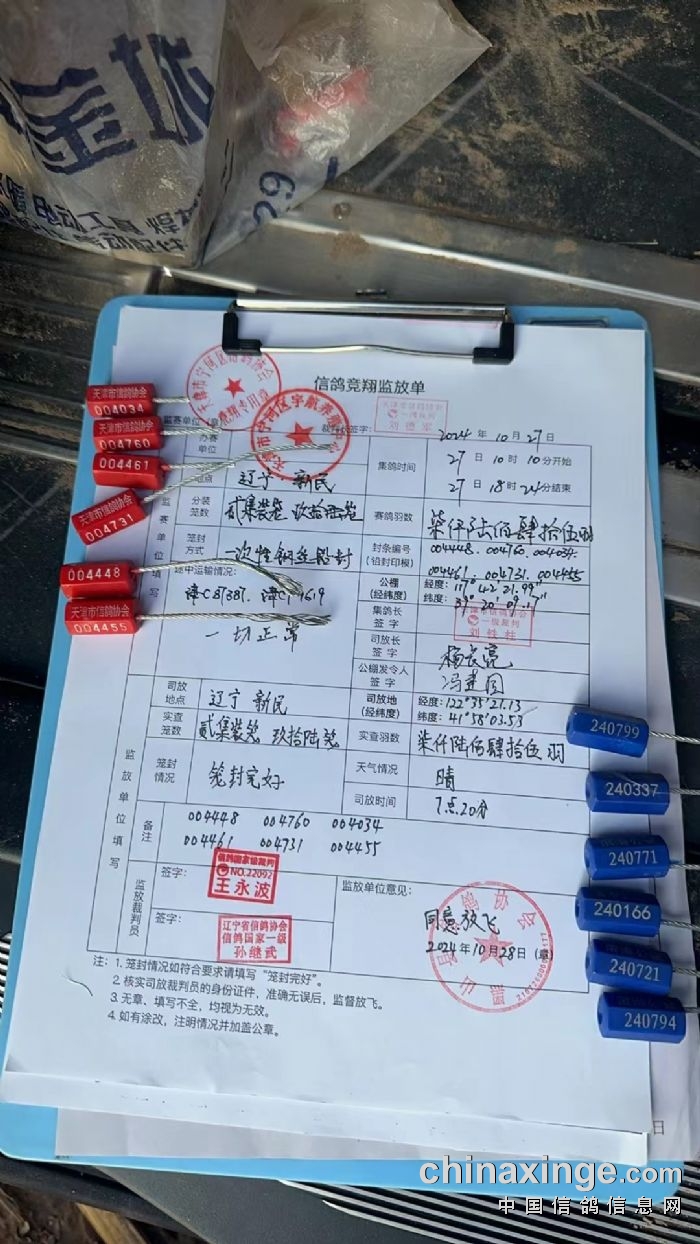 电动工具
信鸽竞翔监放单
监赛单位
裁判长签字:
刘德军
2024年10月27日
办赛单位
集鸽时间
27日10时10分开始
27日18时24分结束
辽宁 新民
监赛单位填写
分装笼数
贰集装笼 玖拾陆笼
赛鸽羽数
柒仟陆佰肆拾伍羽
笼封方式
一次性钢丝铅封
封条编号(铅封印模)
004448. 004760. 004034.
004461. 004731. 004455
途中运输情况:
一切正常
公棚(经纬度)
经度:
纬度:
集鸽长签字
一级裁判
刘铁柱
司放长签字
杨长亮
公棚发令人签字
冯建国
监放单位填写
司放地点
辽宁 新民
司放地(经纬度)
经度:122°35′21.13
纬度:41°58′03.53
实查笼数
贰集装笼 玖拾陆笼
实查羽数
柒仟陆佰肆拾伍羽
笼封情况
笼封完好
天气情况
晴
司放时间
7点20分
备注
004448 004760 004034
004461 004731 004455
监放裁判员
签字:
信鸽国家级裁判
NO.22092
王永波
签字:
辽宁省信鸽协会
信鸽国家一级
孙继武
监放单位意见:
同意放飞
2024年10月28日(章)
注:1. 笼封情况如符合要求请填写“笼封完好”。
2. 核实司放裁判员的身份证件,准确无误后,监督放飞。
3. 无章、填写不全,均视为无效。
4. 如有涂改,注明情况并加盖公章。
天津市信鸽协会
004034
天津市信鸽协会
004760
004461
天津市信鸽协会
004731
004448
天津市信鸽协会
004455
240799
240337
240771
240166
240721
240794
日
chinaxinge.com
中国信鸽信息网